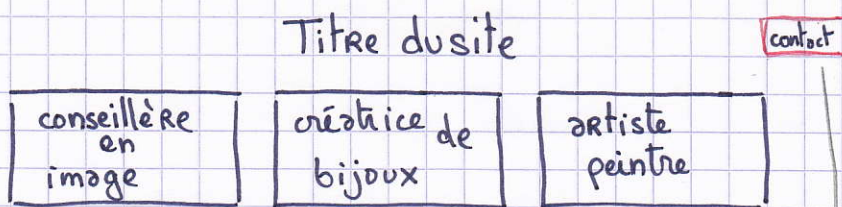 Titre du site
contact
conseillère
en
image
créatrice de
bijoux
artiste
peintre